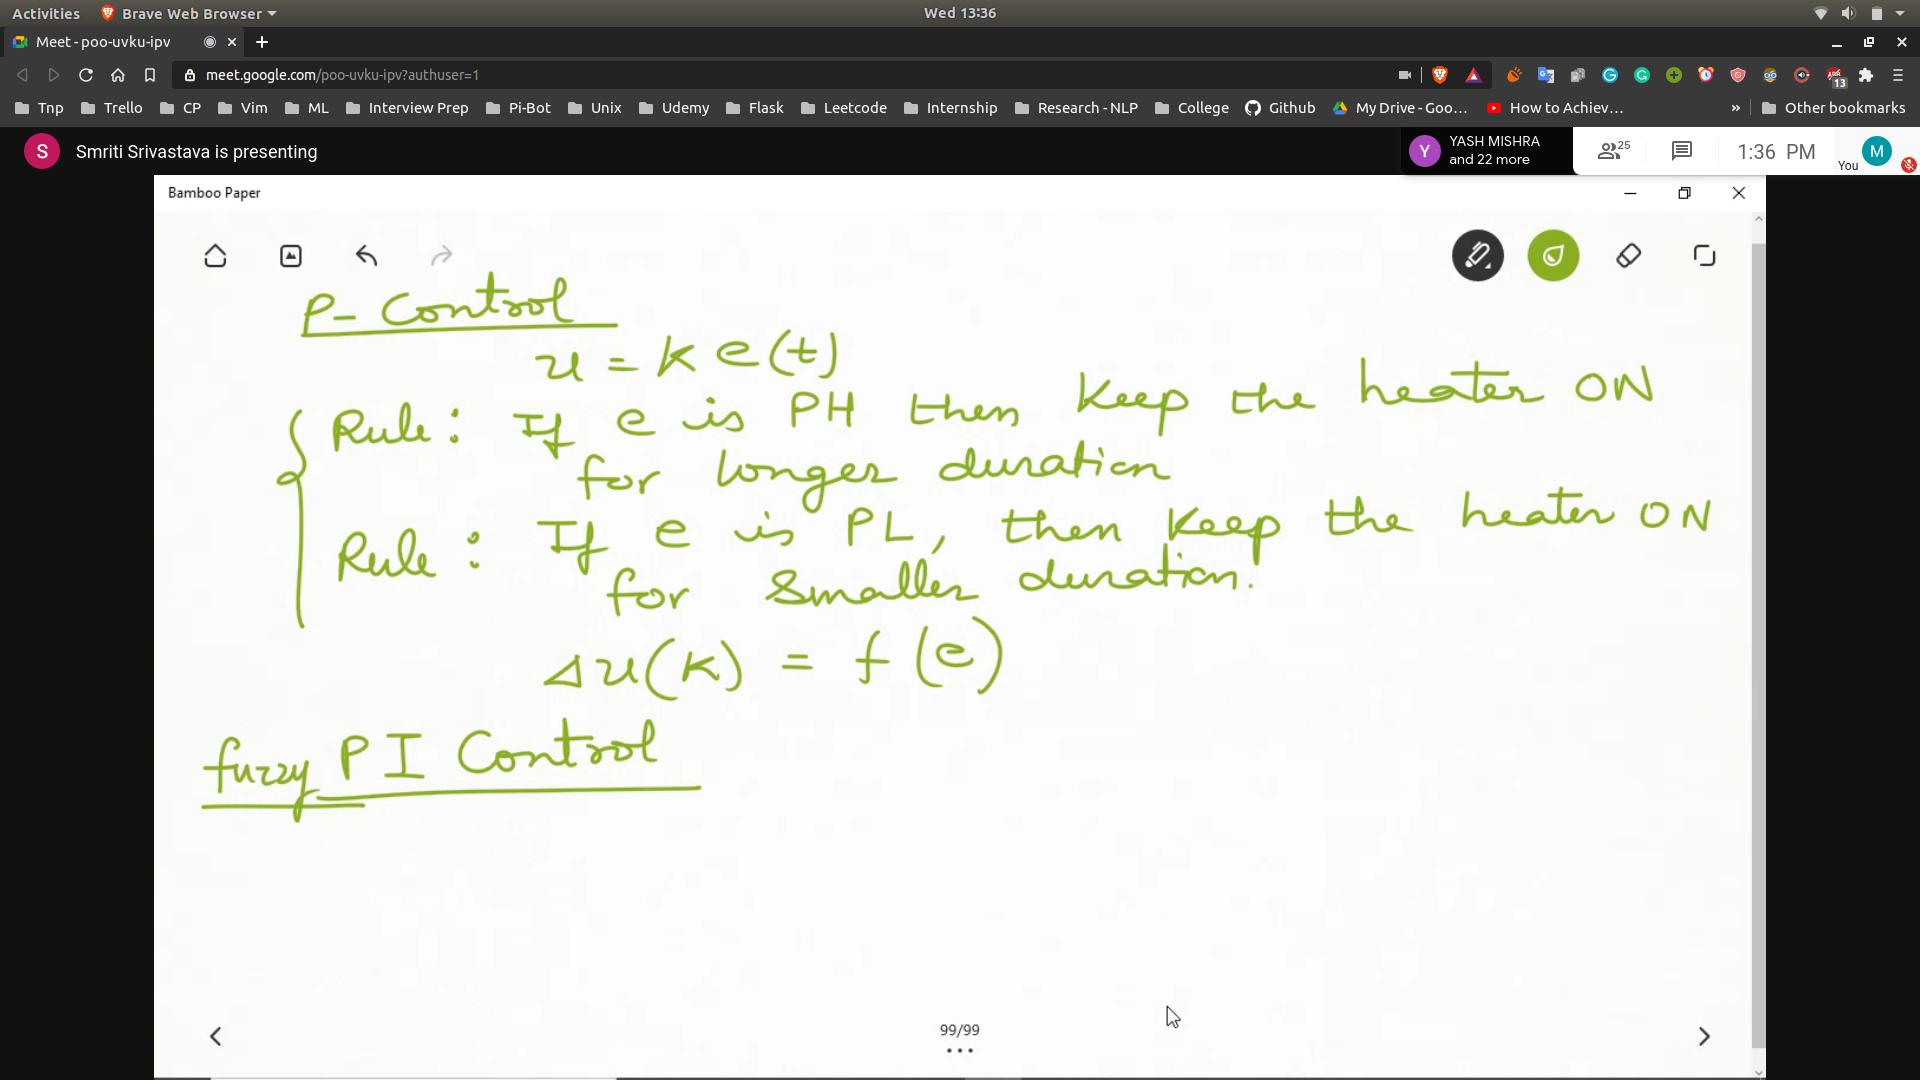 Activities Brave Web Browser Wed 13:36
Meet - poo-uvku-ipv
meet.google.com/poo-uvku-ipv?authuser=1
13
Tnp Trello CP Vim ML Interview Prep Pi-Bot Unix Udemy Flask Leetcode Internship Research - NLP College Github My Drive - Goo... How to Achiev... » Other bookmarks
S Smriti Srivastava is presenting
Y YASH MISHRA
and 22 more
25
1:36 PM
You M
Bamboo Paper
P- Control
u = k e(t)
Rule: If e is PH then keep the heater ON
for longer duration
Rule: If e is PL, then keep the heater ON
for smaller duration.
Δu(k) = f(e)
fuzzy PI Control
99/99